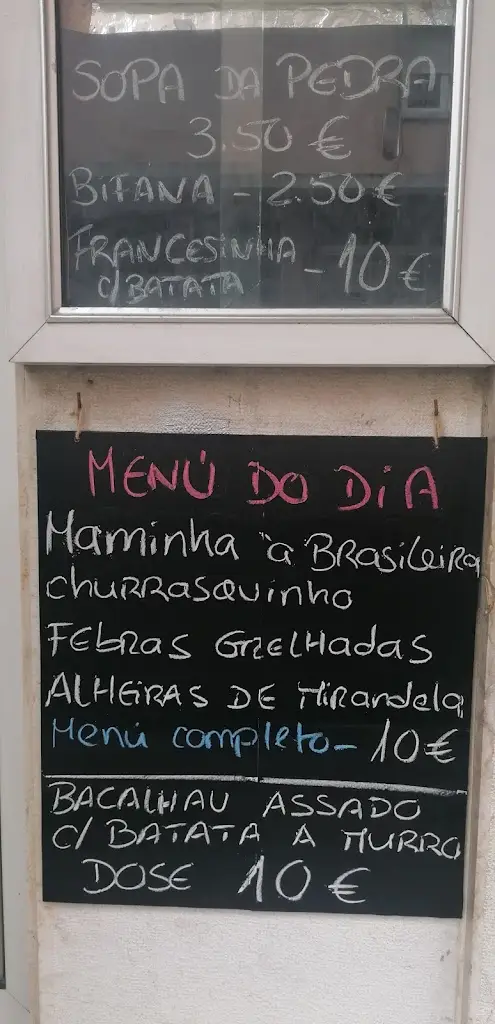 SOPA DA PEDRA
3.50 €
BIFANA - 2.50€
FRANCESINHA
C/ BATATA - 10€
MENÚ DO DIA
Maminha à BRASILEIRA
CHURRASQUINHO
FEBRAS GRELHADAS
ALHEIRAS DE MIRANDELA
Menú completo - 10€
BACALHAU ASSADO
C/ BATATA A MURRO
DOSE 10€